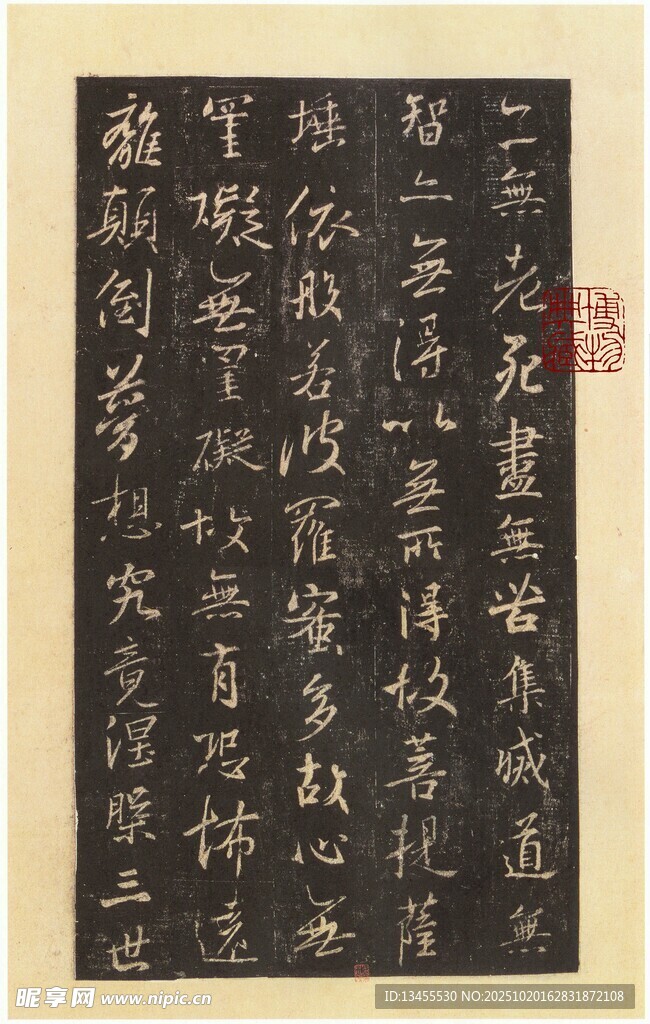 亦無老死盡無苦集滅道無
智亦無得以無所得故菩提薩
埵依般若波羅蜜多故心無
罣礙無罣礙故無有恐怖遠
離顛倒夢想究竟涅槃三世
博物
典藏
昵享网 www.nipic.cn
ID:13455530 NO:20251020162831872108